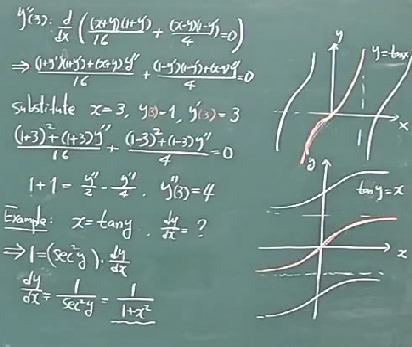 y''(3): d/dx ( (x+y)(1+y')/16 + (x-y)(1-y')/4 = 0 )
⇒ ((1+y')(1+y')+(x+y)y'')/16 + ((1-y')(1-y')+(x-y)y'')/4 = 0
substitute x=3, y(3)=1, y'(3)=3
((1+3)²+(1+3)y'')/16 + ((1-3)²+(1-3)y'')/4 = 0
1+1 = y''/2 - y''/4, y''(3)=4
Example: x=tany. dy/dx = ?
⇒ 1=(sec²y). dy/dx
dy/dx = 1/sec²y = 1/(1+x²)
y
y=tanx
x
y
tany=x
x